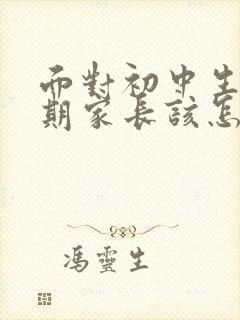 而對初中生
期家長該怎
馮靈生